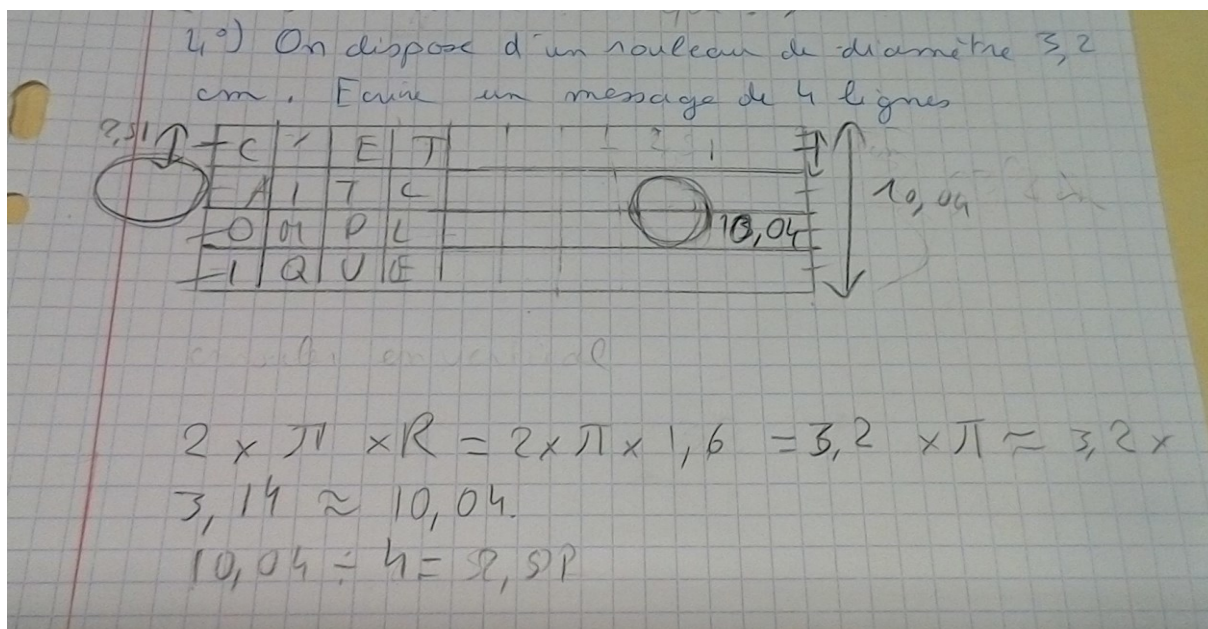 4°) On dispose d'un rouleau de diamètre 3,2
cm. Ecrire un message de 4 lignes
2,51 C ' E T
A I T C
O M P L 10,04
I Q U E
10,04
2 x π x R = 2 x π x 1,6 = 3,2 x π ≈ 3,2 x
3,14 ≈ 10,04.
10,04 ÷ 4 = 2,51